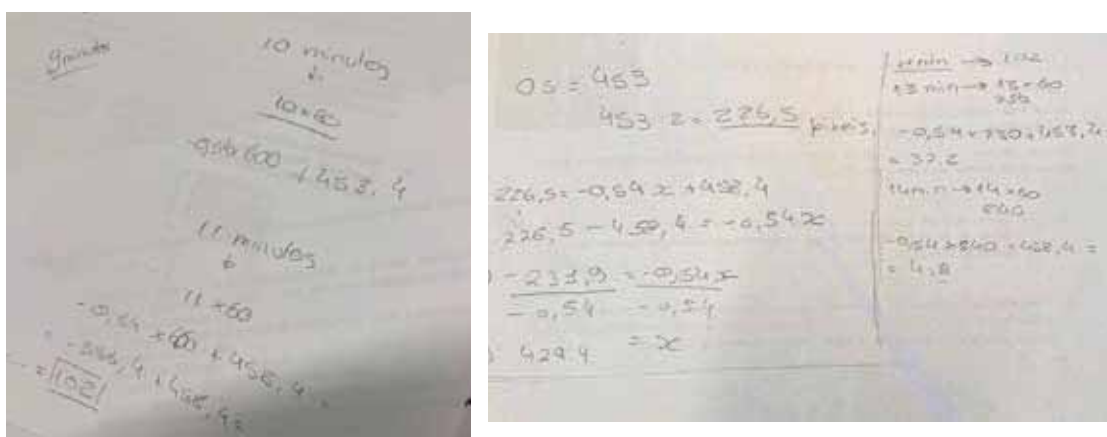 9 minutos
10 minutos
↓
10×60
-0,54×600 + 458,4
11 minutos
↓
11×60
-0,54 × 660 + 458,4 =
= -356,4 + 458,4 =
= 102
0s = 453
453 : 2 = 226,5
226,5 = -0,54x + 458,4
226,5 - 458,4 = -0,54x
-231,9 = -0,54x
-0,54 -0,54
429.4 = x
11min → 102
13 min → 13×60
780
-0,54×780+458,4
= 37,2
14min → 14×60
840
-0,54×840+458,4 =
= 4,8